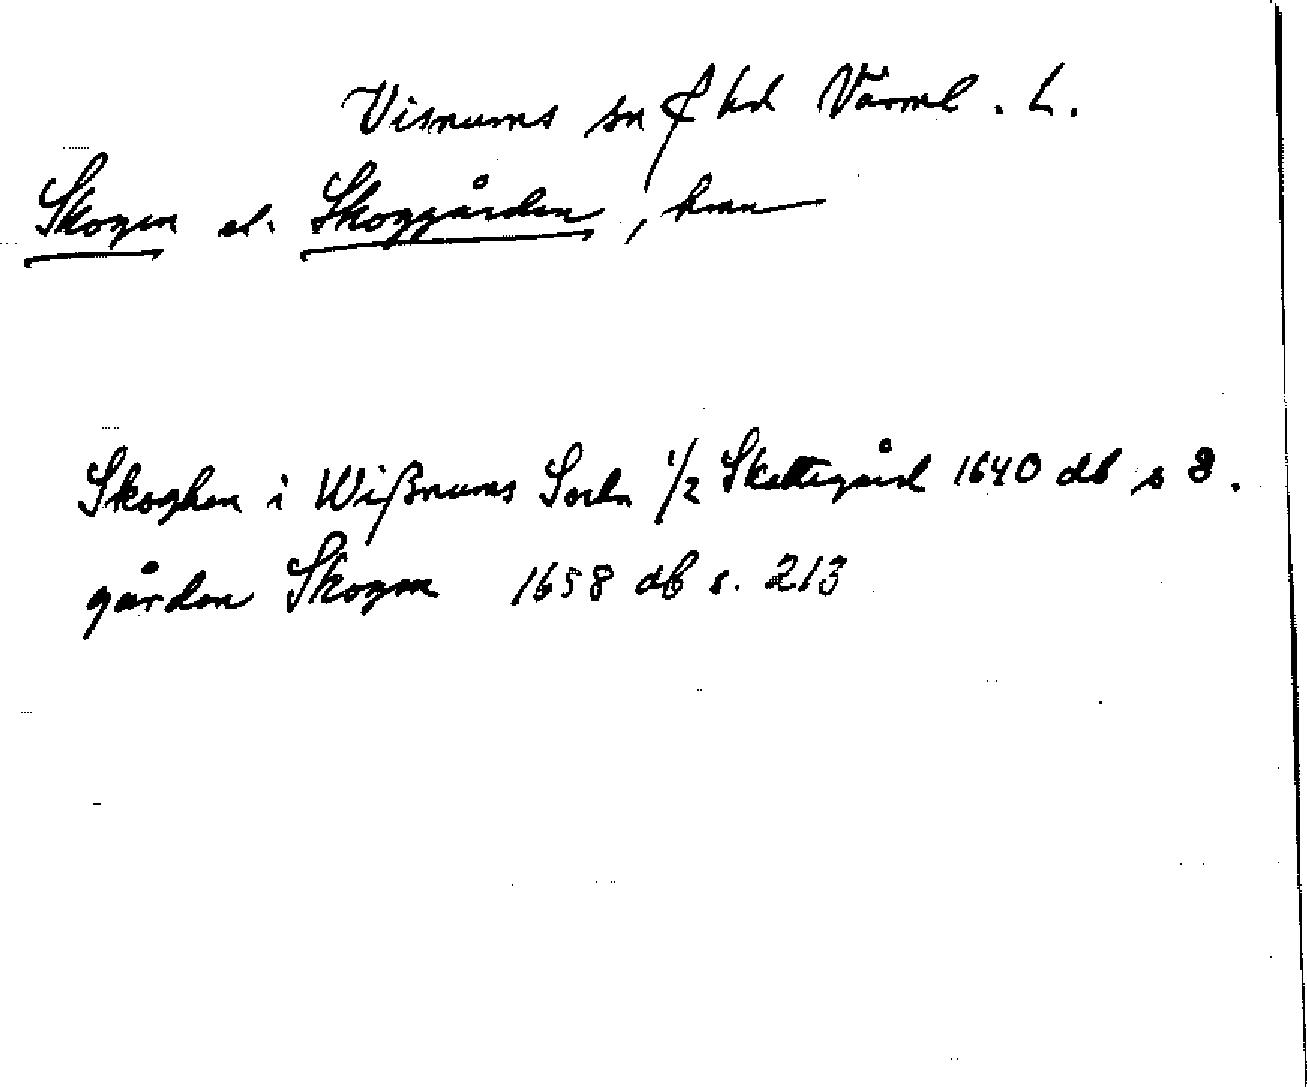 Visnums sn f hd Värml. L.
Skogen el. Skoggården, hmn
Skoghen i Wißnums Sockn 1/2 Skattegård 1640 db s 8.
gården Skogen 1658 db s. 213